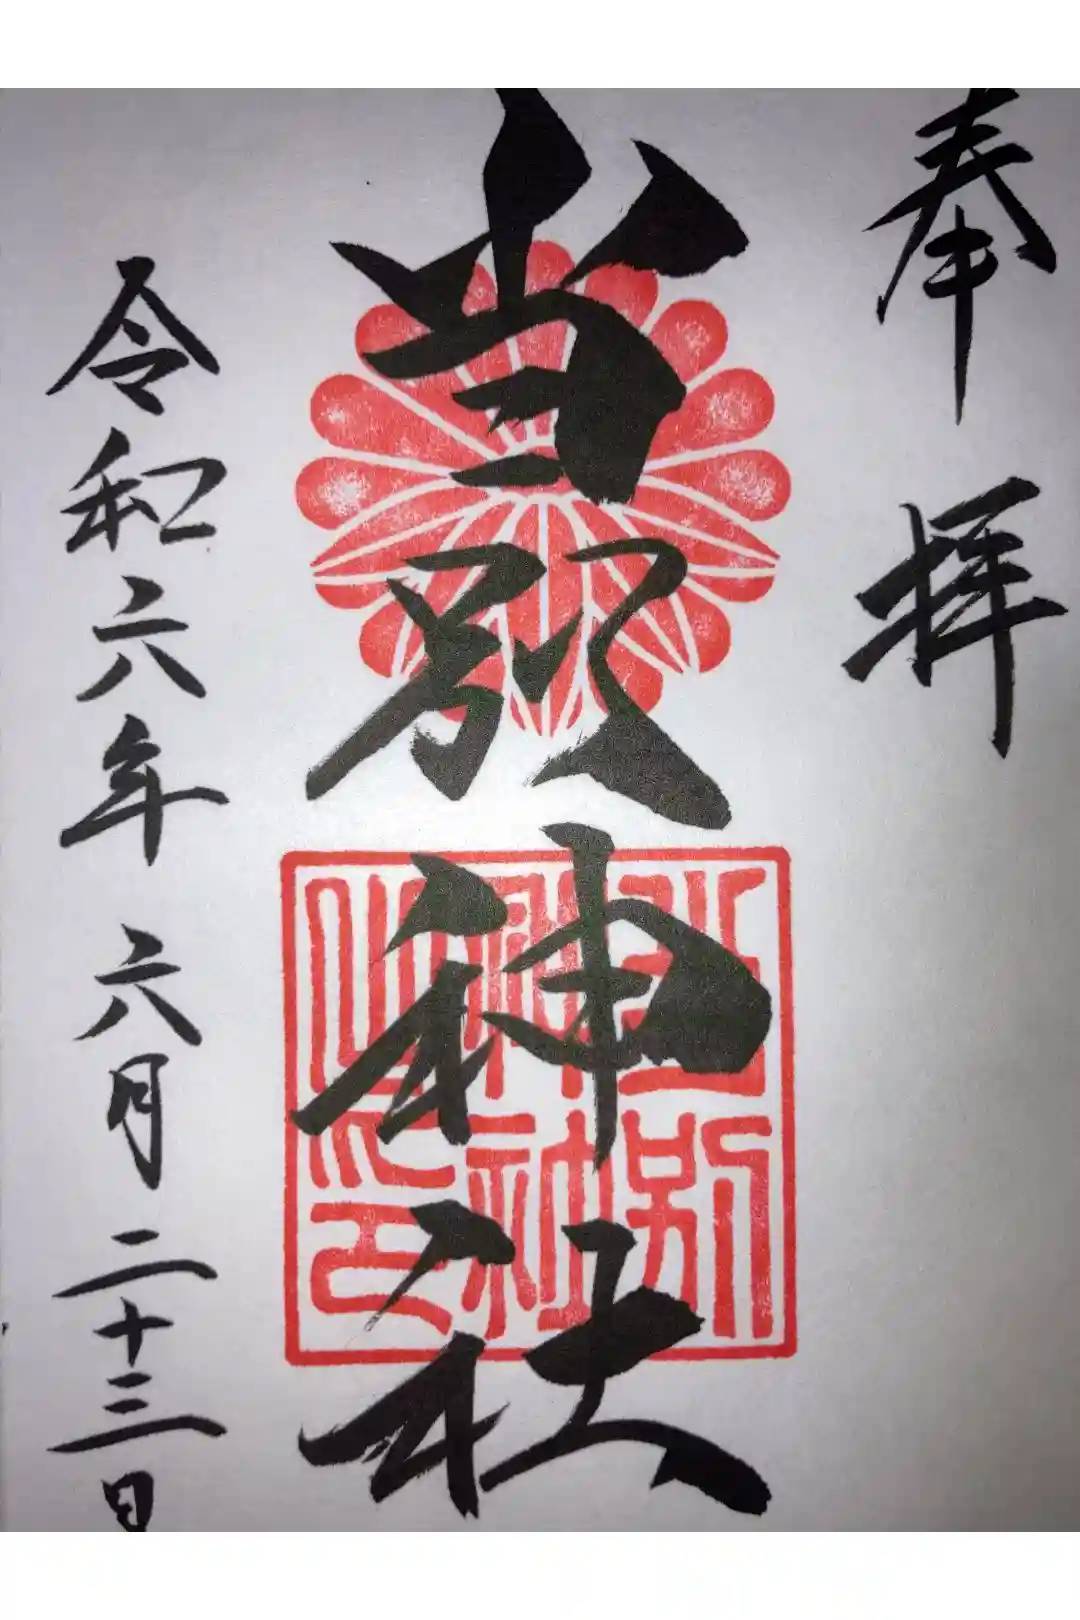 奉拝
当別神社
令和六年六月二十三日
当別
神社
之印